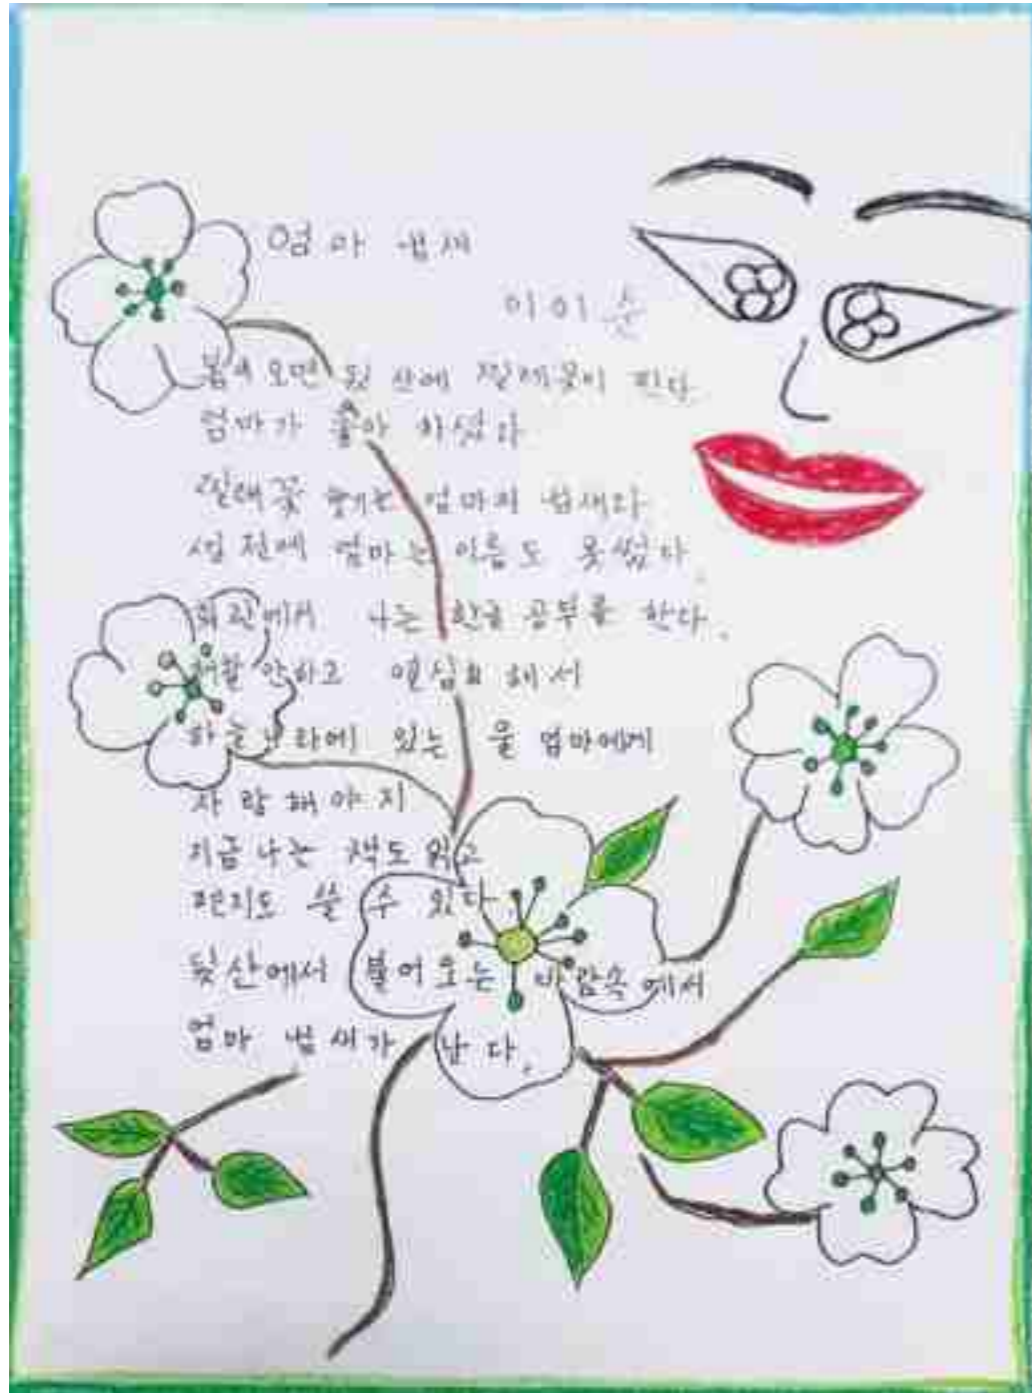 엄마 냄새
이이순
봄이 오면 뒷 산에 찔레꽃이 핀다
엄마가 좋아 하셨다
찔래꽃 향기는 엄마의 냄새다
생전에 엄마는 이름도 못썼다.
에서 나는 한글 공부를 한다.
안하고 열심히 해서
하늘나라에 있는 울 엄마에게
자랑해야지
지금 나는 책도 읽고
편지도 쓸 수 있다.
뒷산에서 불어 오는 바람속에서
엄마 냄새가 난다.